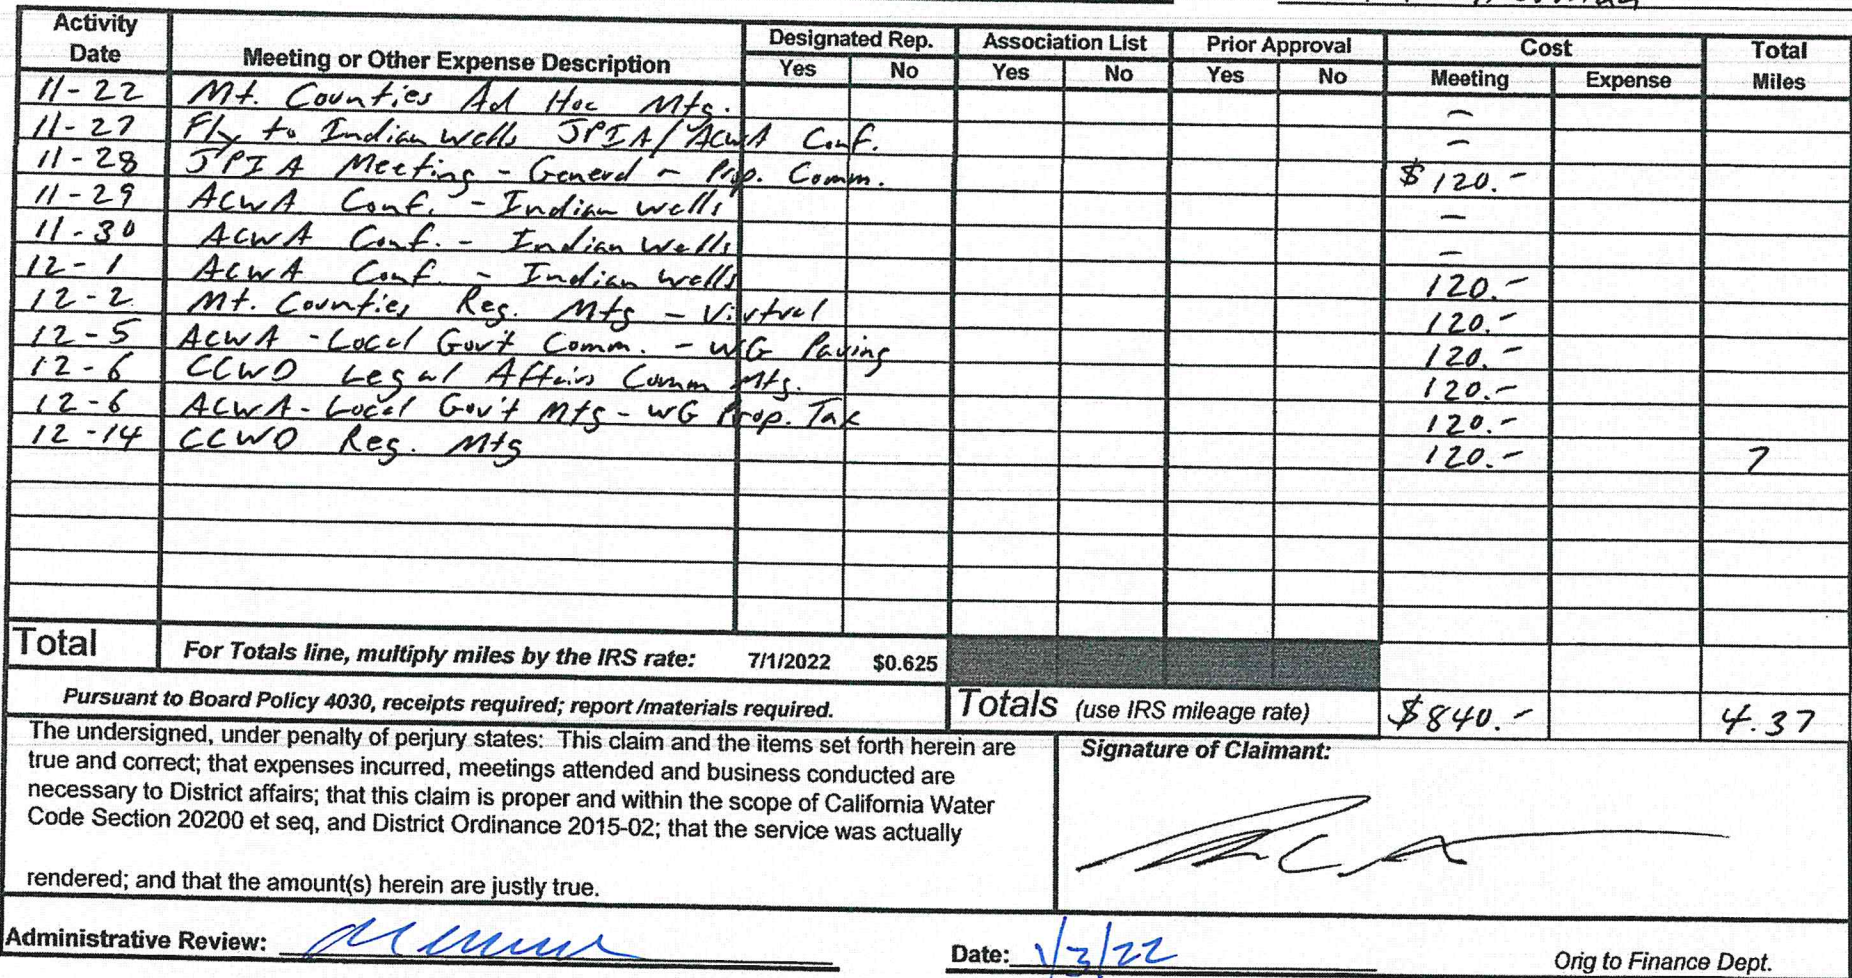 Activity Date Meeting or Other Expense Description Designated Rep. Association List Prior Approval Cost Total Miles
Yes No Yes No Yes No Meeting Expense
11-22 Mt. Counties Ad Hoc Mtg. -
11-27 Fly to Indian Wells JPIA/ACWA Conf. -
11-28 JPIA Meeting - General - Prop. Comm. $120.-
11-29 ACWA Conf. - Indian Wells -
11-30 ACWA Conf. - Indian Wells -
12-1 ACWA Conf. - Indian Wells 120.-
12-2 Mt. Counties Reg. Mtg - Virtual 120.-
12-5 ACWA - Local Gov't Comm. - WG Paving 120.-
12-6 CCWD Legal Affairs Comm Mtg. 120.-
12-6 ACWA - Local Gov't Mtg - WG Prop. Tax 120.-
12-14 CCWD Reg. Mtg 120.- 7
Total For Totals line, multiply miles by the IRS rate: 7/1/2022 $0.625
Pursuant to Board Policy 4030, receipts required; report /materials required. Totals (use IRS mileage rate) $840.- 4.37
The undersigned, under penalty of perjury states: This claim and the items set forth herein are
true and correct; that expenses incurred, meetings attended and business conducted are
necessary to District affairs; that this claim is proper and within the scope of California Water
Code Section 20200 et seq, and District Ordinance 2015-02; that the service was actually
rendered; and that the amount(s) herein are justly true.
Signature of Claimant:
Administrative Review: Date: 1/3/22 Orig to Finance Dept.